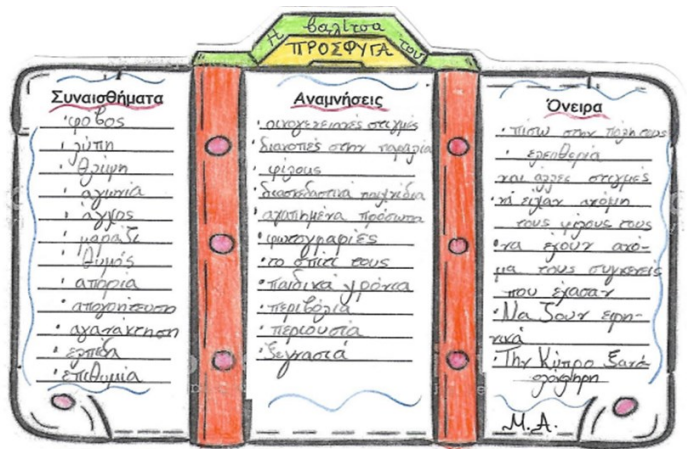 Η βαλίτσα του
ΠΡΟΣΦΥΓΑ
Συναισθήματα
· φόβος
· λύπη
· θλίψη
· αγωνία
· άγχος
· μαράζι
· θυμός
· απορία
· απογοήτευση
· αγανάκτηση
· ελπίδα
· επιθυμία
Αναμνήσεις
· οικογενειακές στιγμές
· διακοπές στην παραλία
φίλους
· διασκεδαστικά παιχνίδια
· αγαπημένα πρόσωπα
· φωτογραφίες
· το σπίτι τους
· παιδικά χρόνια
· περιβόλια
· περιουσία
· ξεγνασιά
Όνειρα
· πίσω στην πόλη τους
· ελευθερία
και άλλες στιγμές
· να είχαν ακόμη
τους φίλους τους
· να έχουν ακό-
μα τους συγγενείς
που έχασαν
· Να ζουν ειρη-
νικά
· Την Κύπρο ξανά
ολόκληρη
Μ.Α.